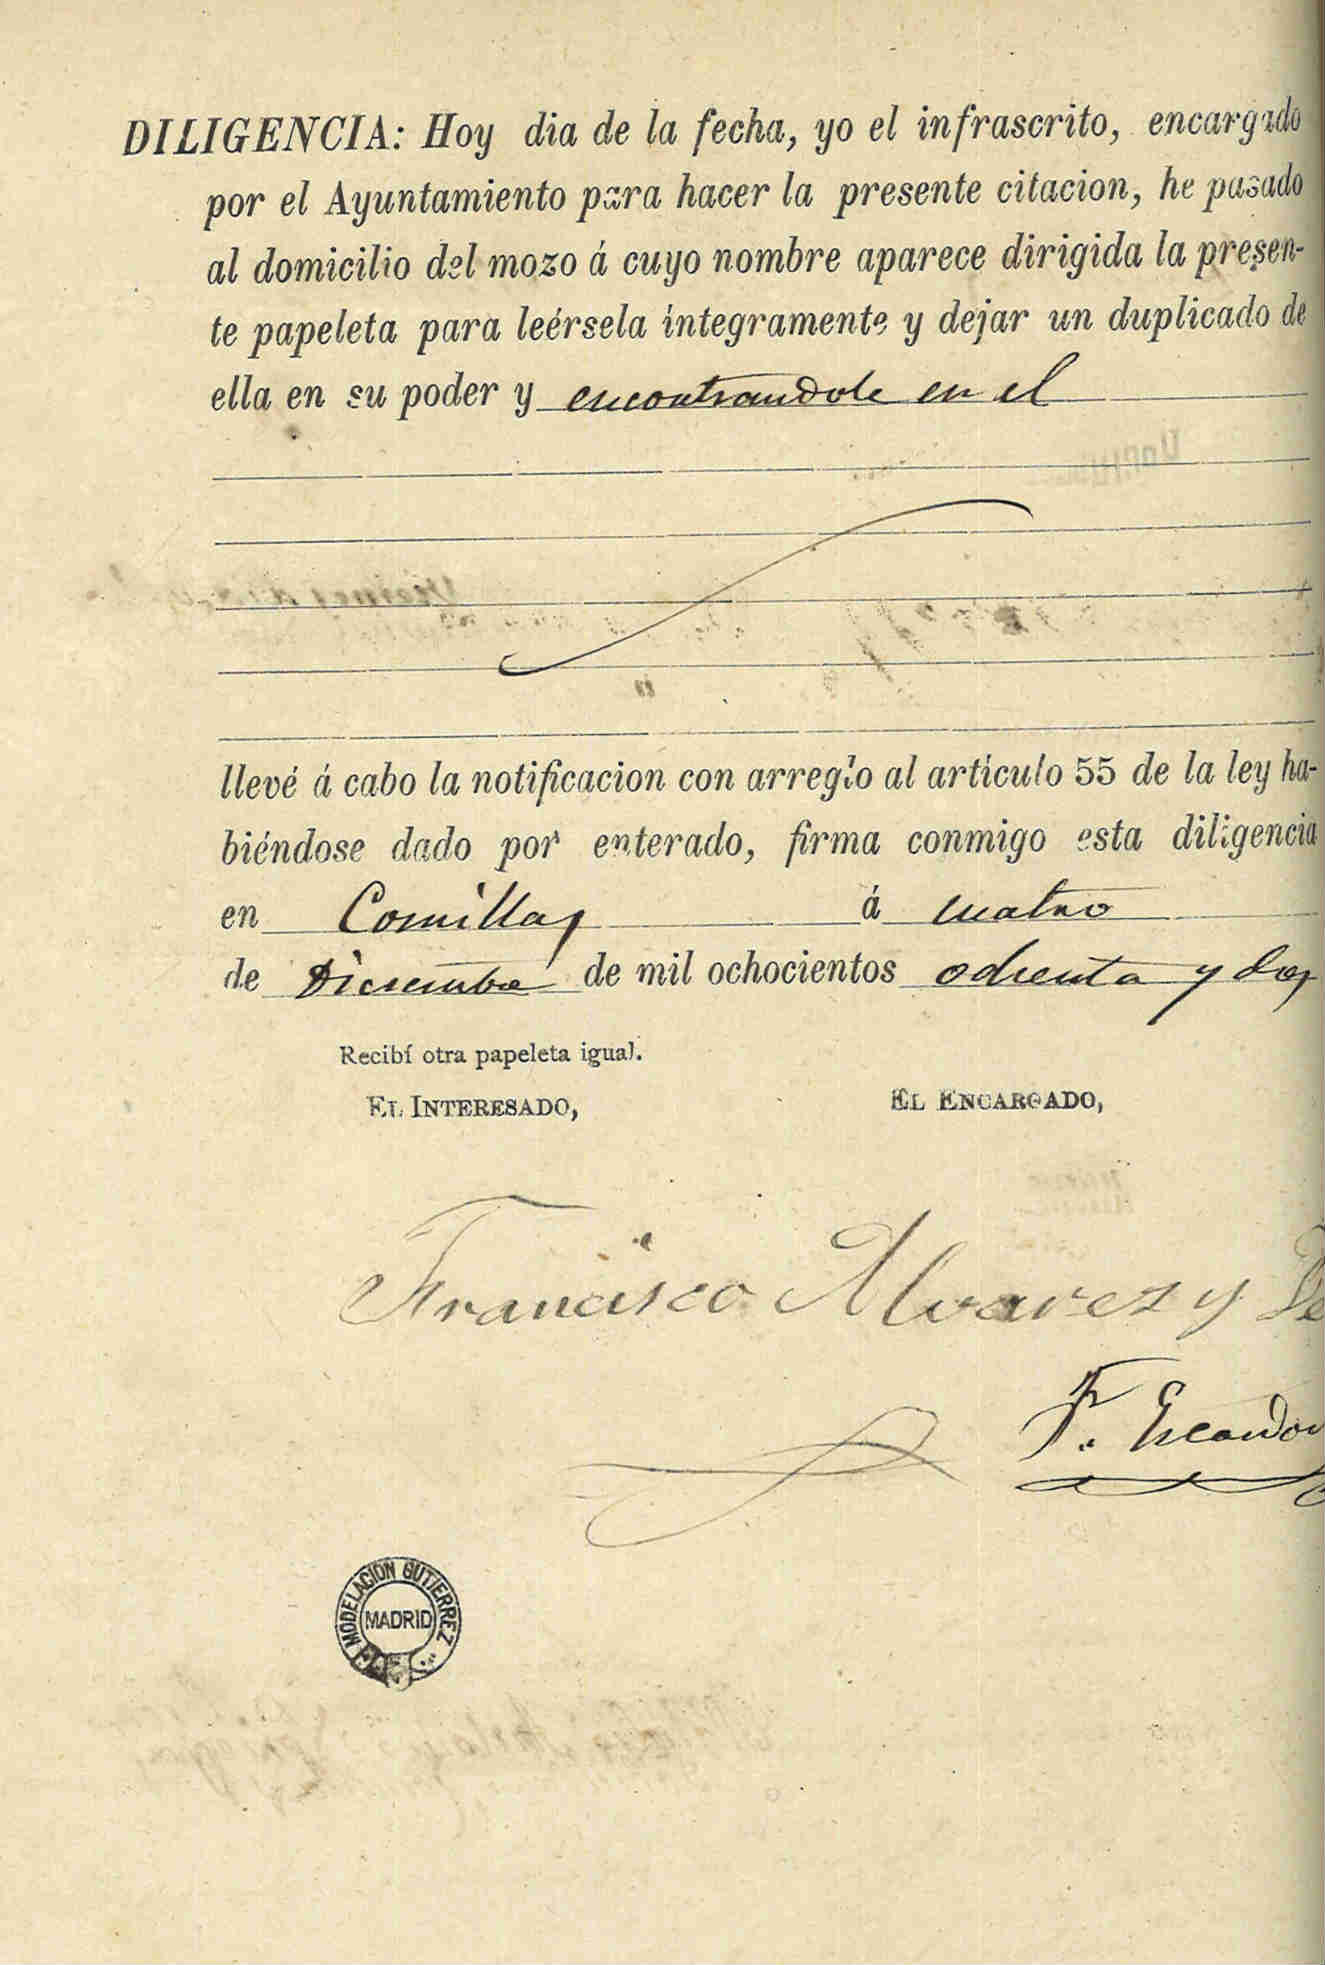 DILIGENCIA: Hoy dia de la fecha, yo el infrascrito, encargado
por el Ayuntamiento para hacer la presente citacion, he pasado
al domicilio del mozo á cuyo nombre aparece dirigida la presen-
te papeleta para leérsela íntegramente y dejar un duplicado de
ella en su poder y encontrandole en el
llevé á cabo la notificacion con arreglo al artículo 55 de la ley ha-
biéndose dado por enterado, firma conmigo esta diligencia
en Comillas á cuatro
de Diciembre de mil ochocientos ochenta y dos
Recibí otra papeleta igual.
EL INTERESADO, EL ENCARGADO,
Francisco Alvarez y
F. Escandon
MODELACION GUTIERREZ
MADRID